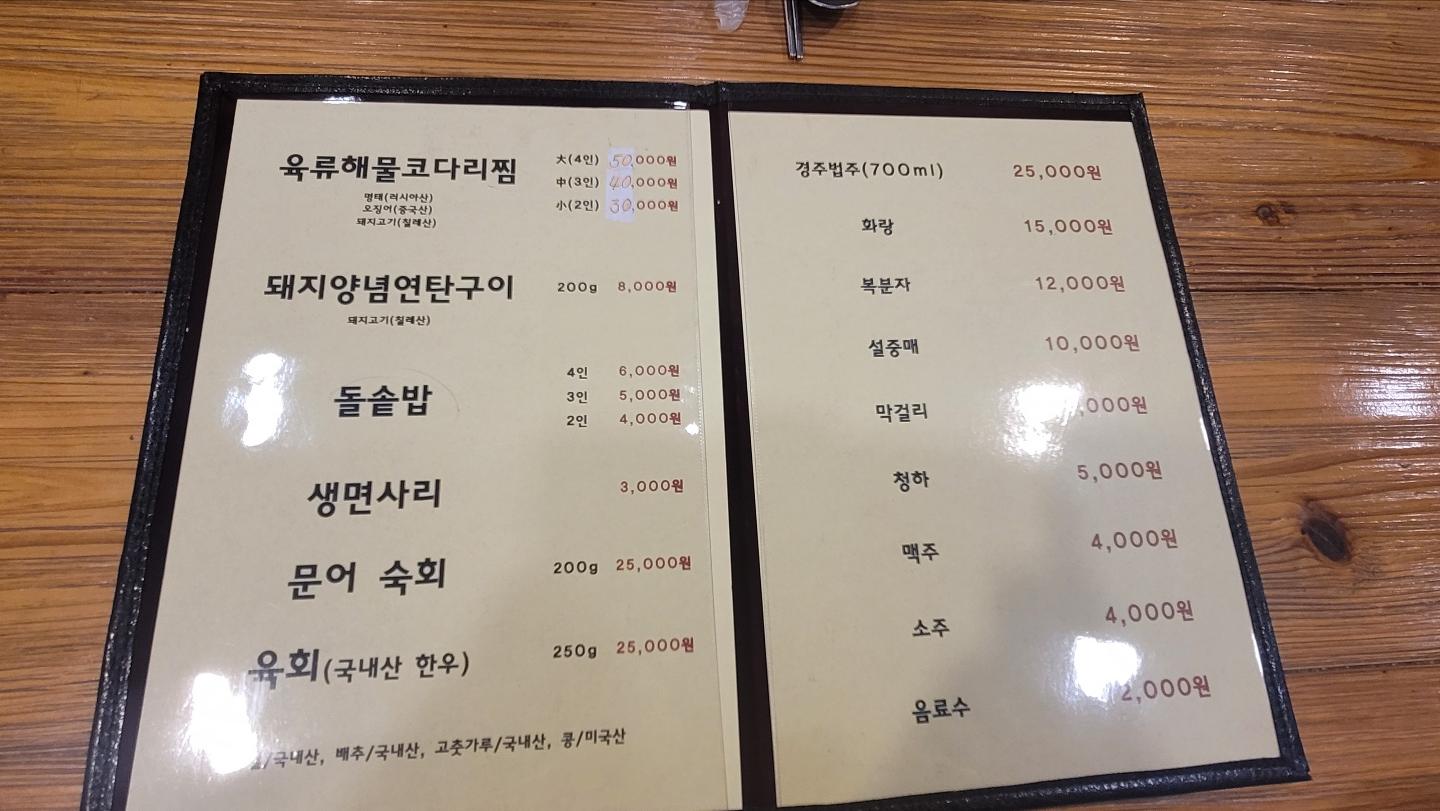 육류해물코다리찜
大(4인) 50,000원
中(3인) 40,000원
小(2인) 30,000원
명태(러시아산)
오징어(중국산)
돼지고기(칠레산)
돼지양념연탄구이 200g 8,000원
돼지고기(칠레산)
돌솥밥
4인 6,000원
3인 5,000원
2인 4,000원
생면사리 3,000원
문어 숙회 200g 25,000원
육회(국내산 한우) 250g 25,000원
/국내산, 배추/국내산, 고춧가루/국내산, 콩/미국산
경주법주(700ml) 25,000원
화랑 15,000원
복분자 12,000원
설중매 10,000원
막걸리 ,000원
청하 5,000원
맥주 4,000원
소주 4,000원
음료수 2,000원